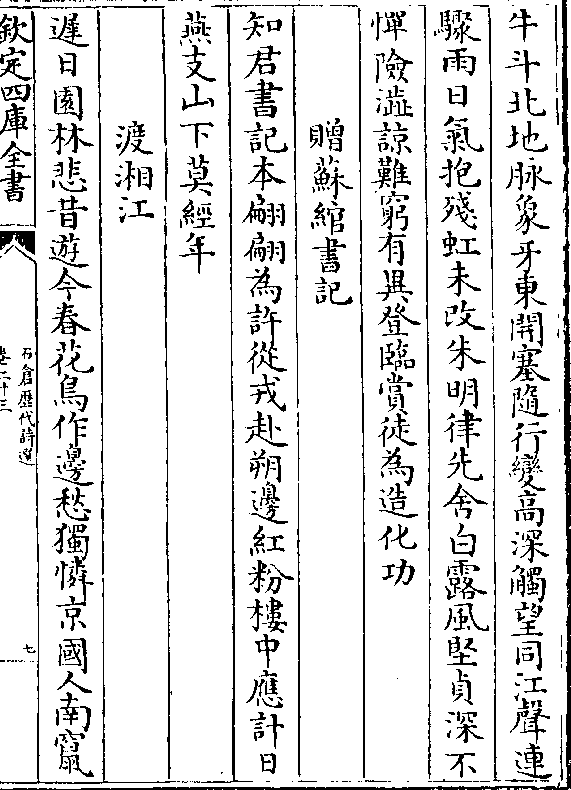 牛斗北地脉象牙東開塞隨行變高深觸望同江聲連
驟雨日氣抱殘虹未改朱明律先含白露風堅貞深不
憚險澁諒難窮有異登臨賞徒為造化功
贈蘇綰書記
知君書記本翩翩為許從戎赴朔邊紅粉樓中應計日
燕支山下莫經年
渡湘江
遲日園林悲昔遊今春花鳥作邊愁獨憐京國人南竄
欽定四庫全書
石倉歷代詩選
卷二十三
七